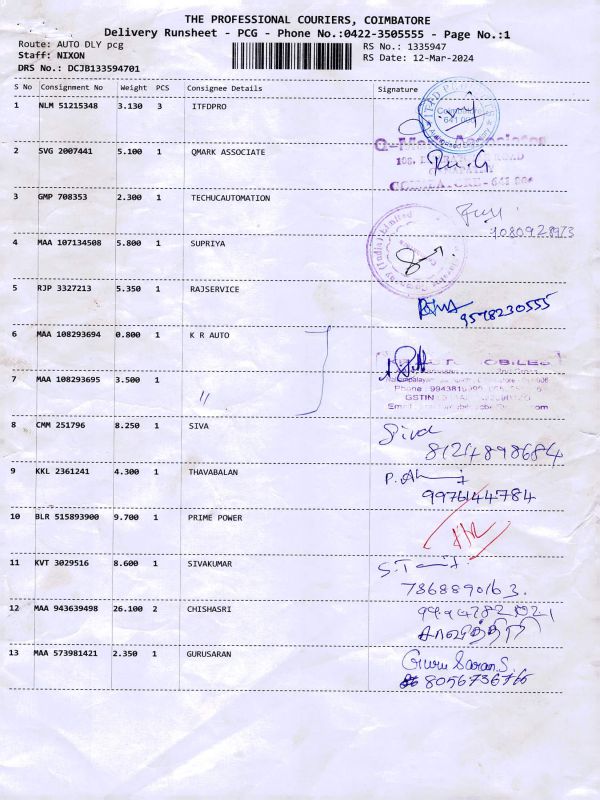 THE PROFESSIONAL COURIERS, COIMBATORE
Delivery Runsheet - PCG - Phone No.:0422-3505555 - Page No.:1
Route: AUTO DLY pcg RS No.: 1335947
Staff: NIXON RS Date: 12-Mar-2024
DRS No.: DCJB133594701
S No Consignment No Weight PCS Consignee Details Signature
1 NLM 51215348 3.130 3 ITFDPRO
2 SVG 2007441 5.100 1 QMARK ASSOCIATE
3 GMP 708353 2.300 1 TECHUCAUTOMATION
4 MAA 107134508 5.800 1 SUPRIYA
5 RJP 3327213 5.350 1 RAJSERVICE
9578230555
6 MAA 108293694 0.800 1 K R AUTO
7 MAA 108293695 3.500 1 "
Phone
GSTIN
8 CMM 251796 8.250 1 SIVA Siva
8124898684
9 KKL 2361241 4.300 1 THAVABALAN
9976144784
10 BLR 515893900 9.700 1 PRIME POWER
11 KVT 3029516 8.600 1 SIVAKUMAR
7368890163.
12 MAA 943639498 26.100 2 CHISHASRI
13 MAA 573981421 2.350 1 GURUSARAN Guru Saran.S.